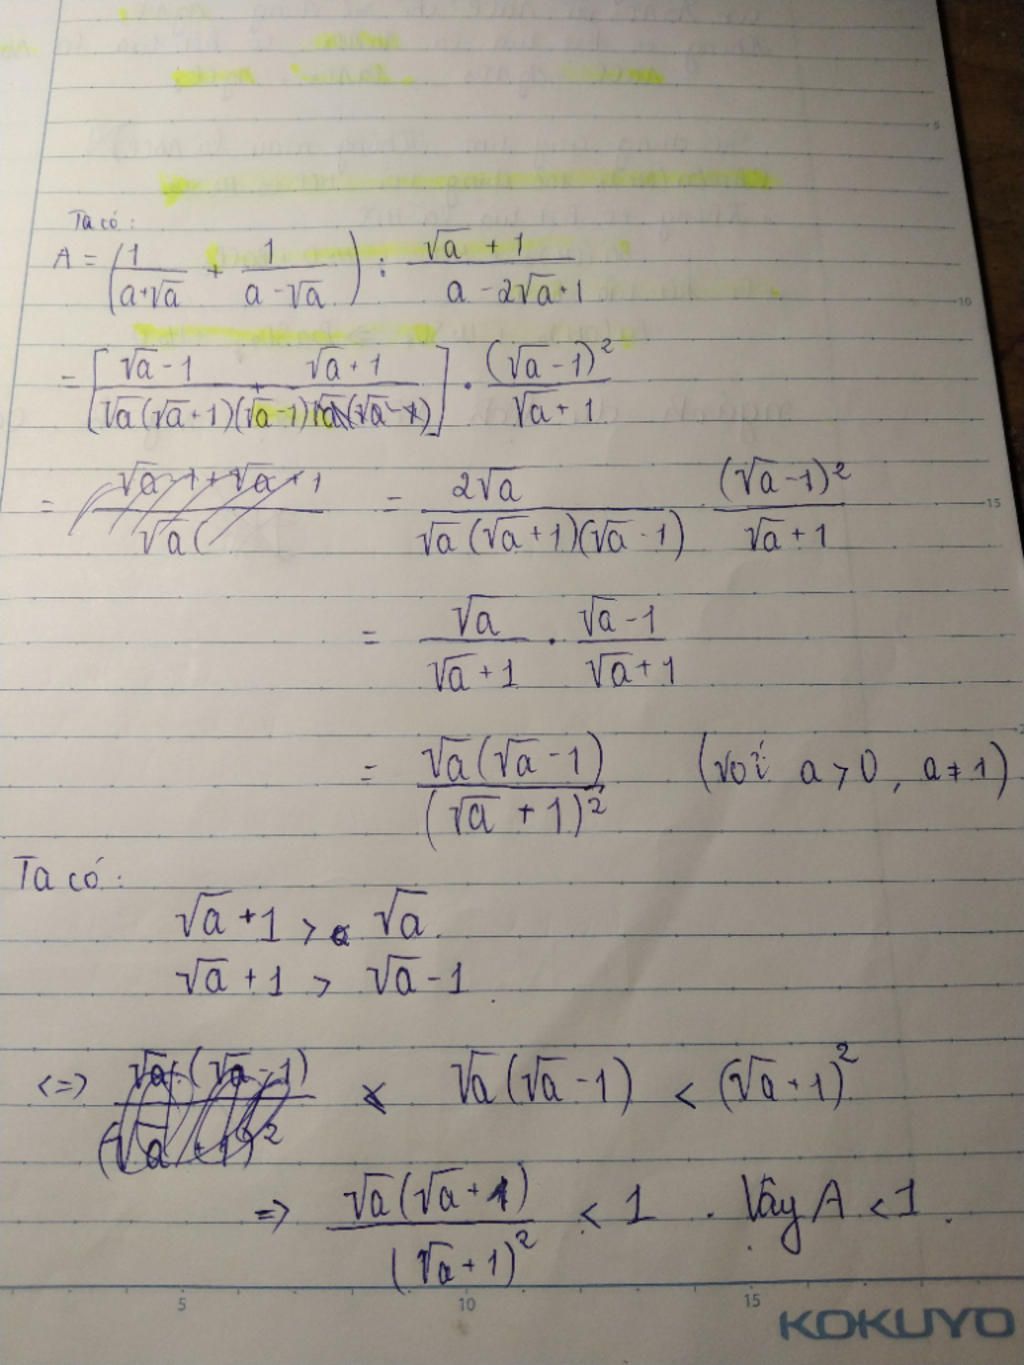 Ta có:
A = (1/(a+√a) + 1/(a-√a)) : (√a + 1)/(a - 2√a + 1)
= [(√a - 1 + √a + 1)/(√a(√a+1)(√a-1))] . (√a - 1)²/(√a + 1)
= 2√a/(√a(√a+1)(√a-1)) (√a-1)²/(√a+1)
= √a/(√a+1) . (√a-1)/(√a+1)
= √a(√a-1)/(√a+1)² (với a > 0, a ≠ 1)
Ta có:
√a + 1 > √a.
√a + 1 > √a - 1.
<=> √a(√a - 1) < (√a + 1)²
=> √a(√a + 1)/(√a + 1)² < 1. Vậy A < 1.
5 10 15
KOKUYO
5
10
15